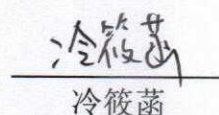 冷筱菡
冷筱菡